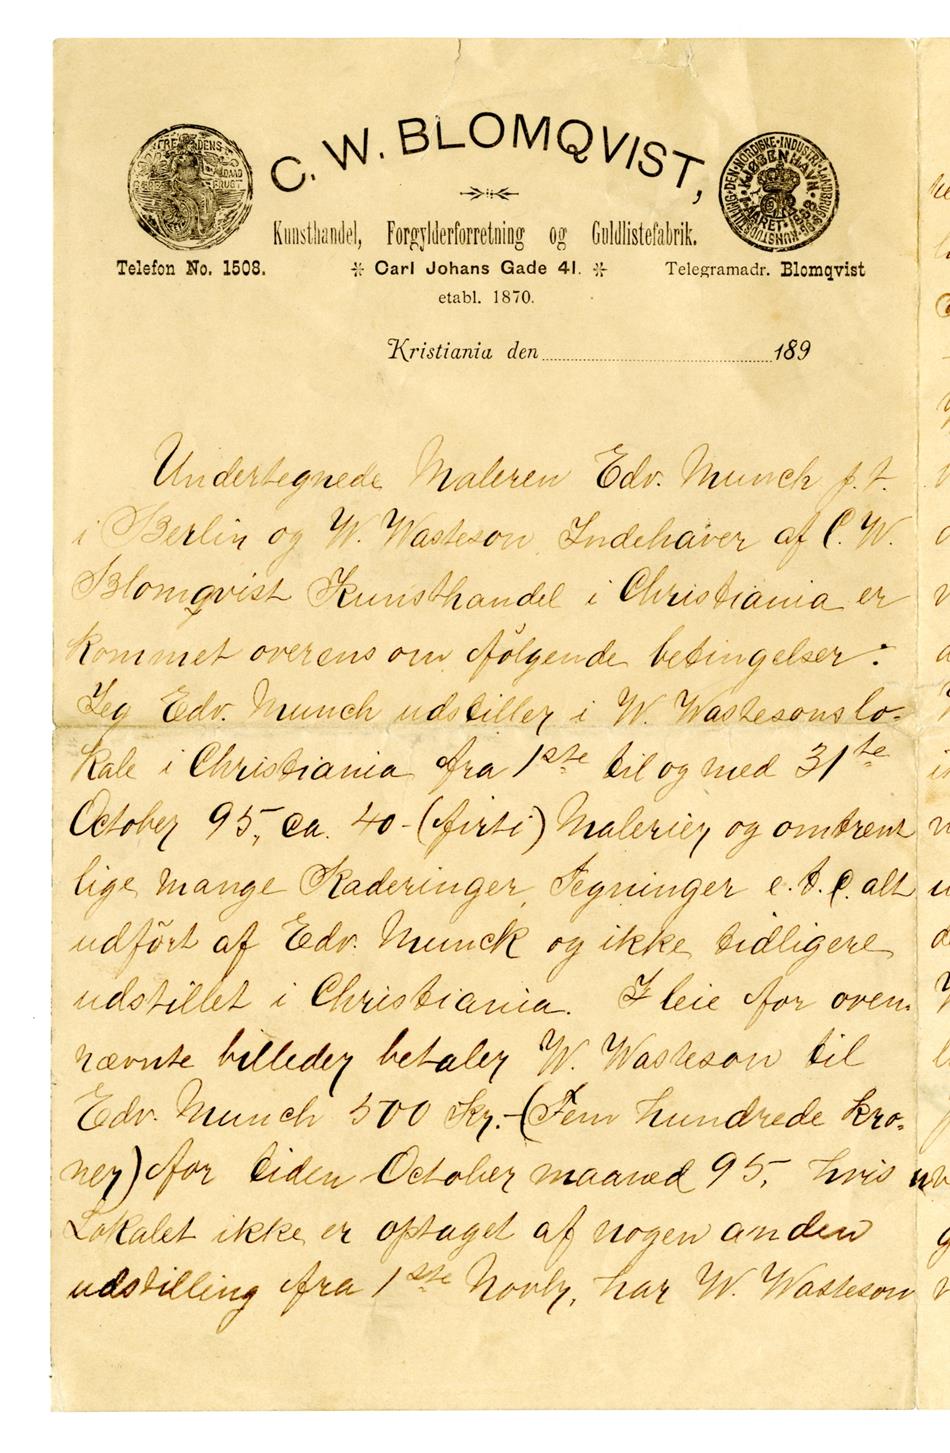 C. W. BLOMQVIST,
FREDENS
FRUGT
DEN · NORDISKE · INDUSTRI · LANDBRUGS OG KUNSTUDSTILLING
KJØBENHAVN
AARET · 1888
Kunsthandel, Forgylderforretning og Guldlistefabrik.
Telefon No. 1508.
Carl Johans Gade 41.
Telegramadr. Blomqvist
etabl. 1870.
Kristiania den 189
Undertegnede Maleren Edv. Munch p.t.
i Berlin og W. Wasteson Indehaver af C. W.
Blomqvist Kunsthandel i Christiania er
kommet overens om følgende betingelser:
Jeg Edv. Munch udstiller i W. Wastesons lo-
kale i Christiania fra 1ste til og med 31te
October 95, ca. 40 - (firti) Malerier og omtrent
lige mange Raderinger, Tegninger e.t.c. alt
udført af Edv. Munck og ikke tidligere
udstillet i Christiania. I leie for oven-
nævnte billeder betaler W. Wasteson til
Edv. Munch 500 Kr. - (Fem hundrede kro-
ner) for tiden October maaned 95, hvis
Lokalet ikke er optaget af nogen anden
udstilling fra 1ste Novbr, har W. Wasteson